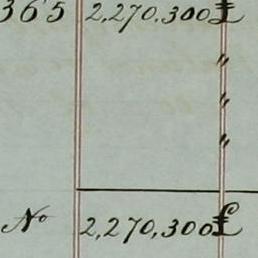 365 2,270,300 £
"
"
"
No 2,270,300 £